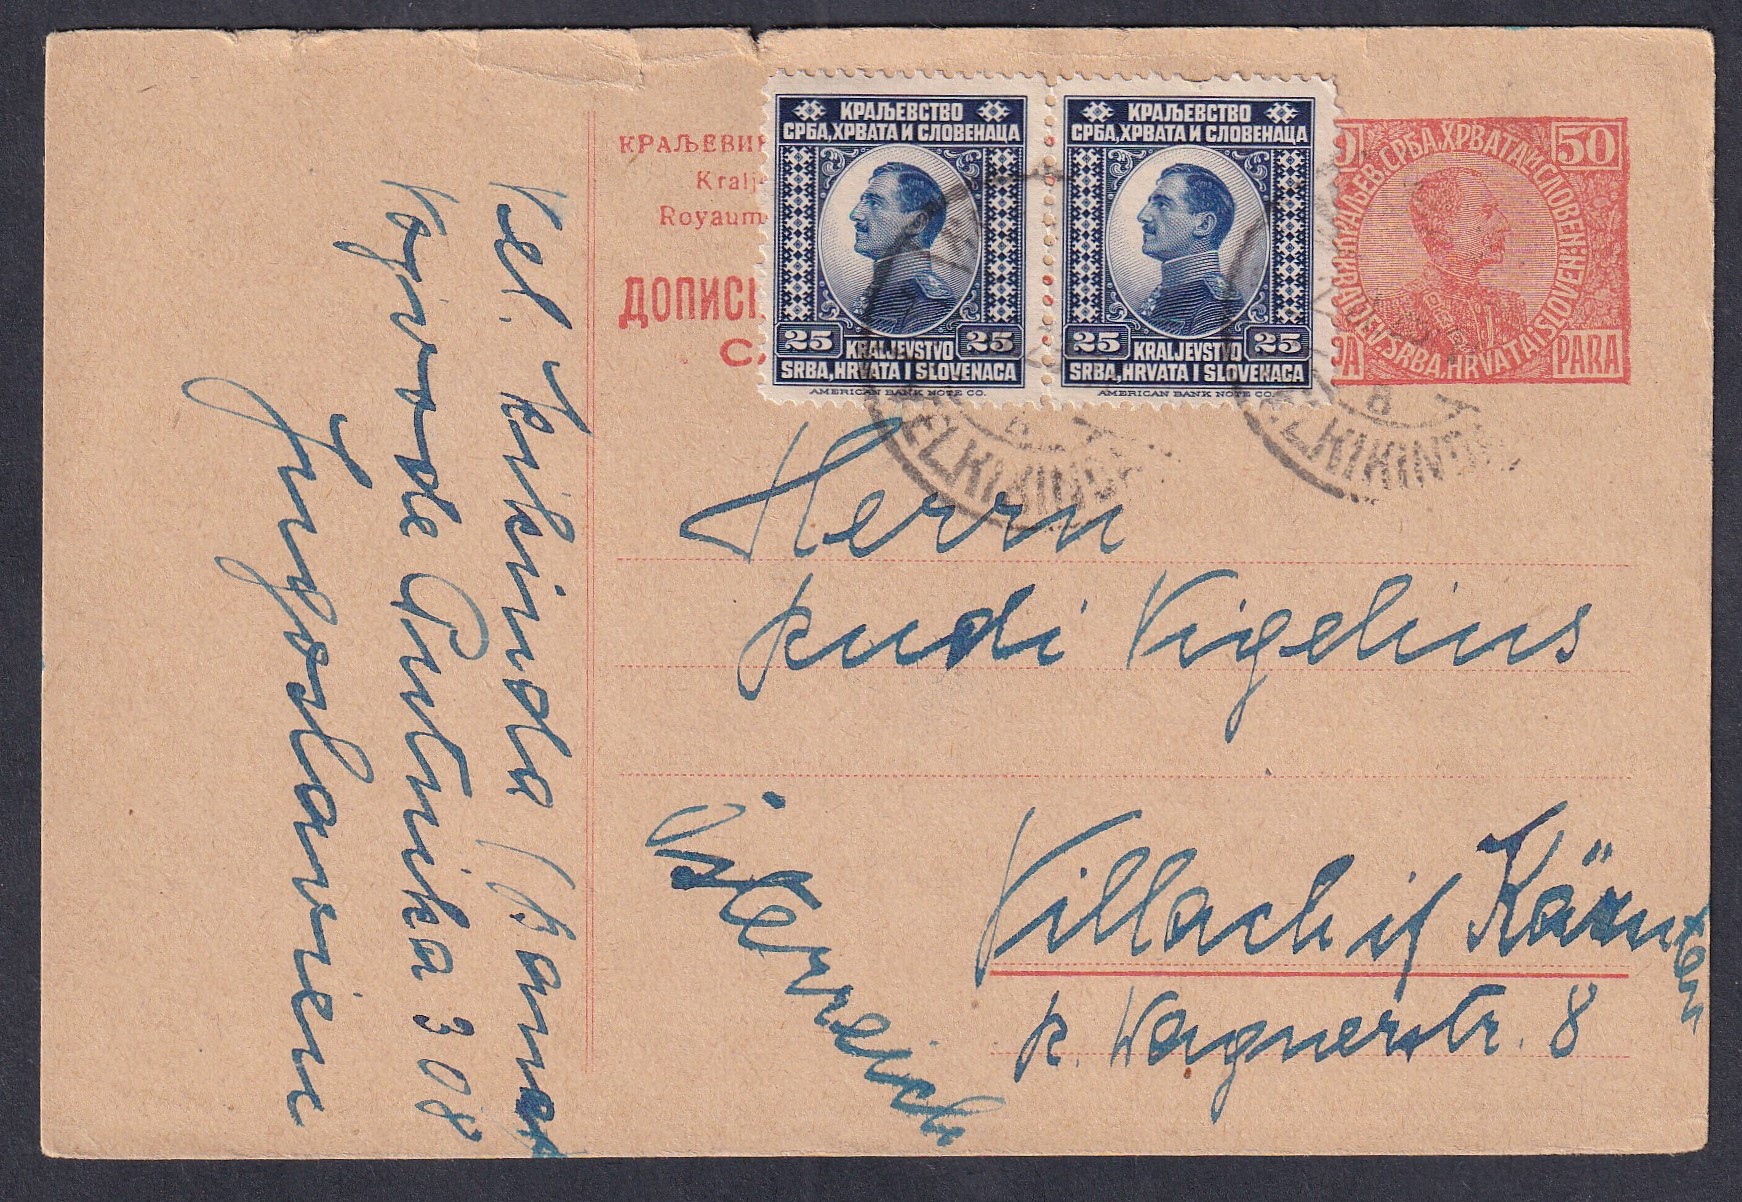 КРАЉЕВИН
Kralj-
Royaum
ДОПИСН
КРАЉЕВСТВО
СРБА, ХРВАТА И СЛОВЕНАЦА
25 25
KRALJEVSTVO
SRBA, HRVATA I SLOVENACA
AMERICAN BANK NOTE CO.
КРАЉЕВСТВО
СРБА, ХРВАТА И СЛОВЕНАЦА
25 25
KRALJEVSTVO
SRBA, HRVATA I SLOVENACA
AMERICAN BANK NOTE CO.
50
СРБА, ХРВАТА И СЛОВЕН:
SRBA, HRVATA I SLOVEN:
PARA
Herrn
Rudi Vigelius
Villach i/ Kärnten
R. Wagnerstr. 8
Österreich
Vel. Kikinda (Banat
Vojvode Putnika 308
Jugoslavien